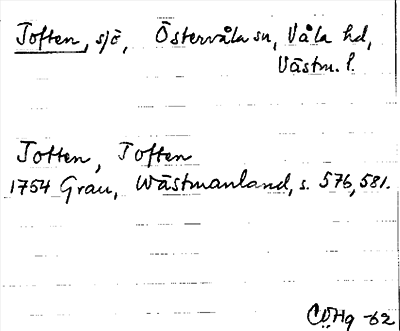 Toften, sjö, Östervåla sn, Våla hd,
Västm. l.
Totten, Toften
1754 Grau, Wästmanland, s. 576, 581.
CÖHg -62